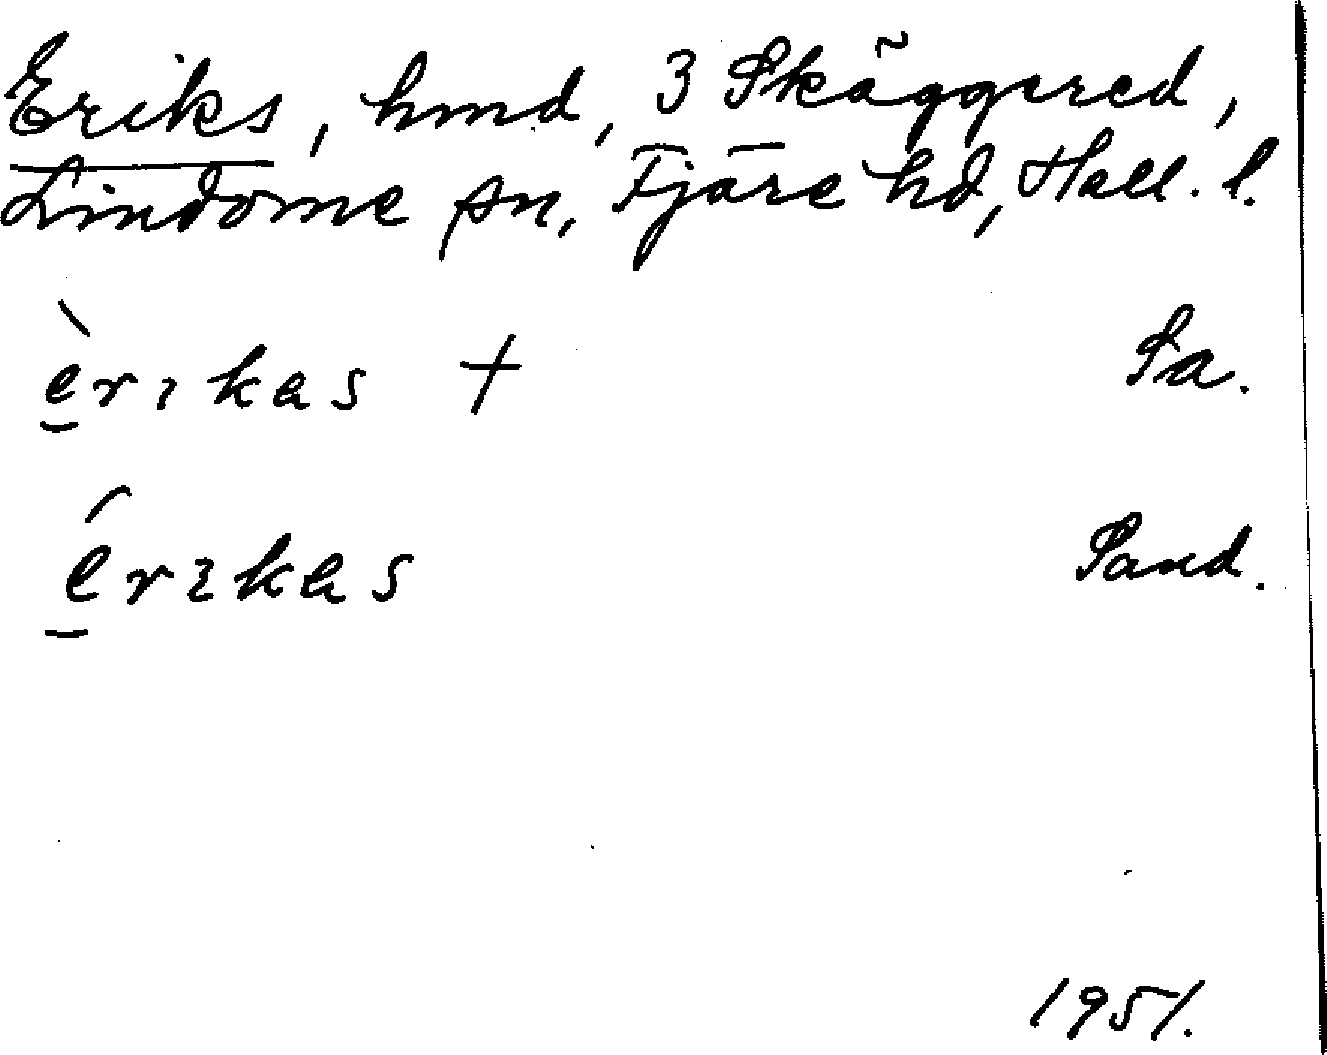 Eriks, hmd, 3 Skäggered,
Lindome sn, Fjäre hd, Hall. l.
è̱rıkas + Sa.
é̱rıkas Sand.
1951.